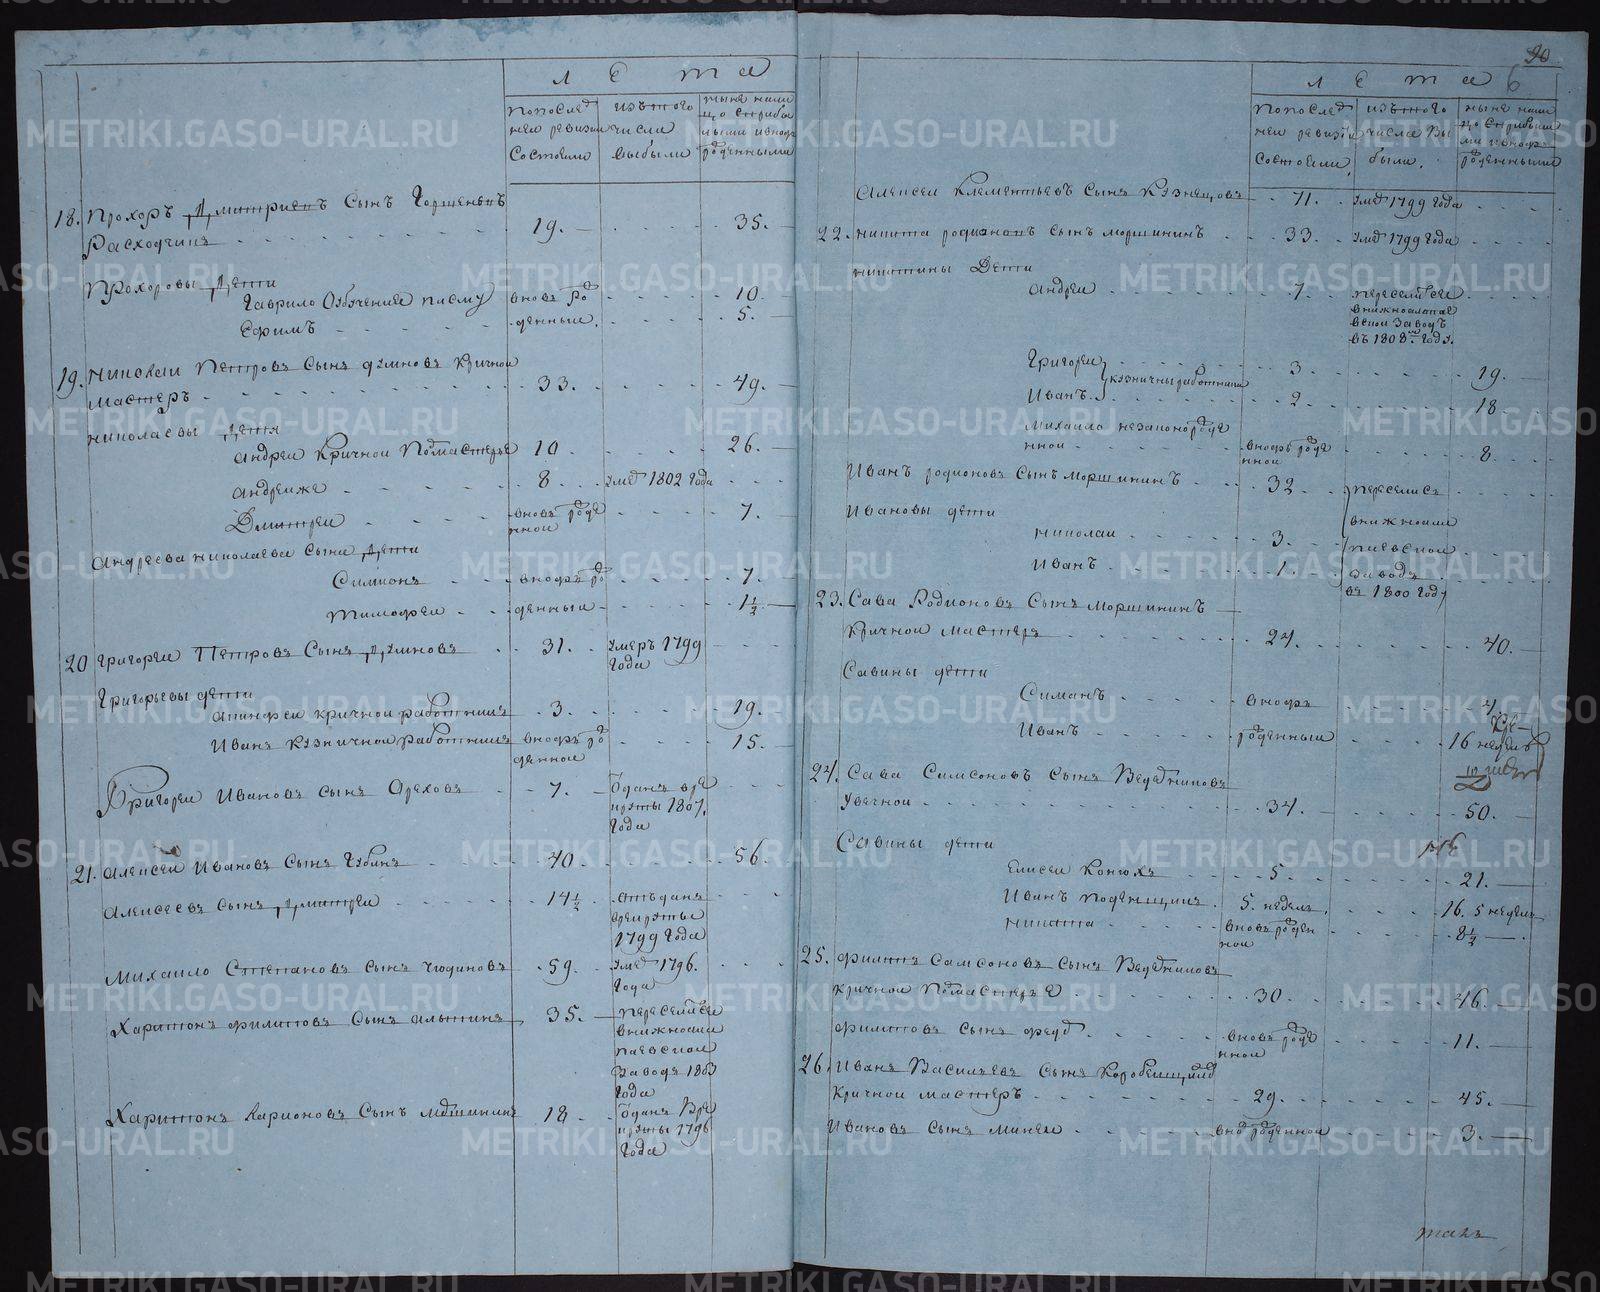 Л е т а
попослед
ней ревизіи
состояло
изъ того
числа
выбыло
ныне нали
цо
рожденными
18. Прохоръ Дмитриевъ сынъ
Расходчикъ 19. 35.
Прохоровы дети
Гаврило Обучение писму вновь ро 10.
Ефимъ денные. 5.
19. Николай Петровъ сынъ Дымновъ кричной
мастеръ 33. 49.
Николаевы дети
Андрей кричной подмастерье 10 26.
Андрей же 8 умер 1802 года
Дмитрей вновь рожде 7.
нной
Андреева Николаева сына дети
Симион вновь ро 7.
Тимофей денныи 1½
20 Григорей Петровъ сынъ Дымновъ 31. умеръ 1799
года
Григорьевы дети
кричной работникъ 3. 19.
Иванъ кузничной работникъ вновь ро 15.
денной
Григорей Ивановъ сынъ Ореховъ 7. Отданъ вре
круты 1807.
года
21. Алексей Ивановъ сынъ Губинъ 40 56.
Алексеевъ сынъ Дмитрей 14½ отъданъ
врекруты
1799 года
Михайло Степановъ сынъ Чюдиновъ 59. умер 1796.
года
Харитонъ Филиповъ сынъ 35. переселилсе
внижноали
паевской
заводъ 1803
года
Харитонъ Ларионовъ сынъ 18 Отданъ вре
круты 1796
года
90
6
Л е т а
попослед
ней ревизіи
состояли
изътого
числа вы
были.
ныне нали
цо
рожденными
Алексей Клементьевъ сынъ Кузнецовъ 71. умер 1799 года
22. Никита Родионовъ сынъ Моршининъ 33. умер 1799 года
Никитины дети
Андрей 7. переселилсеи
внижноалапае
вской заводъ
въ 1808м году.
Григорей 3. 19.
кузничны работники
Иванъ 2. 18.
Михайло незаконорожде
нной вновь рожде 8.
нной
Иванъ Родионовъ сынъ Моршининъ 32. переселисъ
Ивановы дети внижноали
Николай 3. паевской
Иванъ 1. заводъ
въ 1800 году
23. Сава Родионовъ сынъ Моршининъ
кричной мастеръ 24. 40.
Савины дети
Симанъ вновь 4.
Иванъ рожденныи 16 недель
24. Сава Самсоновъ сынъ Ведерниковъ
увечной 34. 50.
Савины дети
Елисей конюхъ 5. 21.
Иванъ поденщикъ 5. недель 16. 5 недель
Никита вновь рожден 8½
ной
25. Филипъ Самсоновъ сынъ Ведерниковъ
кричной подмастерье 30. 46.
Филиповъ сынъ Федор вновь рожде 11.
нной
26. Иванъ Васильевъ сынъ Коробейщиков
кричной мастеръ 29. 45.
Ивановъ сынъ Михей вно рожденной 3.
такъ
METRIKI.GASO-URAL.RU